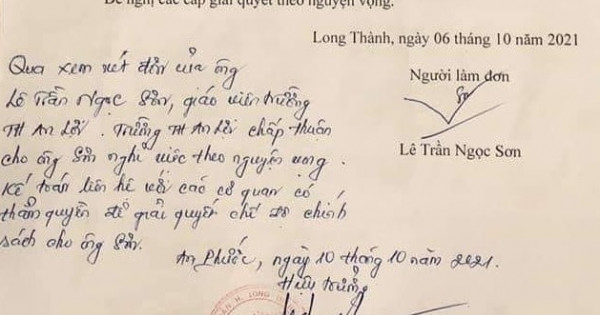 Đề nghị các cấp giải quyết theo nguyện vọng.
Long Thành, ngày 06 tháng 10 năm 2021
Người làm đơn
Lê Trần Ngọc Sơn
Qua xem xét đơn của ông
Lê Trần Ngọc Sơn, giáo viên trường
TH An Lợi. Trường TH An Lợi chấp thuận
cho ông Sơn nghỉ việc theo nguyện vọng.
Kế toán liên hệ với các cơ quan có
thẩm quyền để giải quyết chế độ chính
sách cho ông Sơn.
An Phước, ngày 10 tháng 10 năm 2021.
Hiệu trưởng
H. LONG